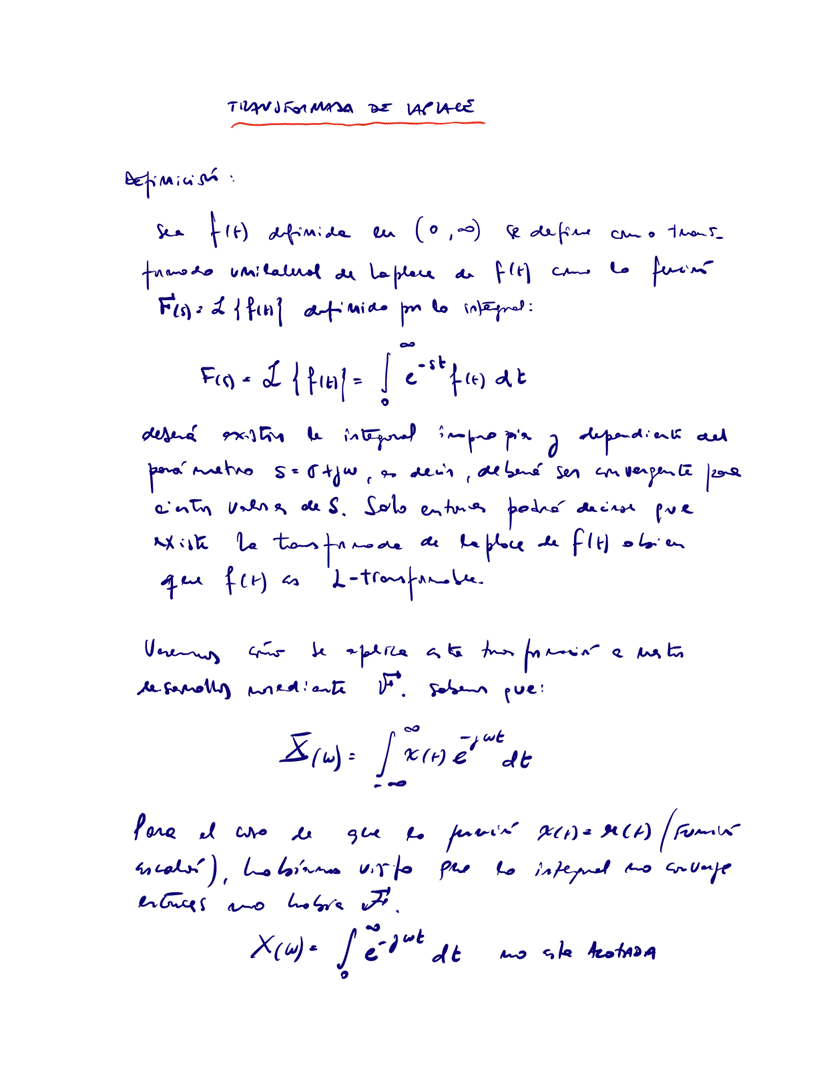 TRANSFORMADA DE LAPLACE
Definición:
Sea f(t) definida en (0, ∞) se define como trans-
formada unilateral de Laplace de f(t) como la función
F(s) = L {f(t)} definida por la integral:
F(s) = L {f(t)} = ∫₀^∞ e^{-st} f(t) dt
deberá existir la integral impropia y dependiente del
parámetro s = σ + jω, es decir, deberá ser convergente para
ciertos valores de S. Solo entonces podrá decirse que
existe la transformada de Laplace de f(t) o bien
que f(t) es L-transformable.
Veremos cómo se aplica esta transformación a
desarrollos mediante F. sabemos que:
X(ω) = ∫_{-∞}^{∞} x(t) e^{-jωt} dt
Para el caso de que la función x(t) = u(t) (Función
escalón), habíamos visto que la integral no converge
entonces no habra F.
X(ω) = ∫₀^∞ e^{-jωt} dt no esta ACOTADA